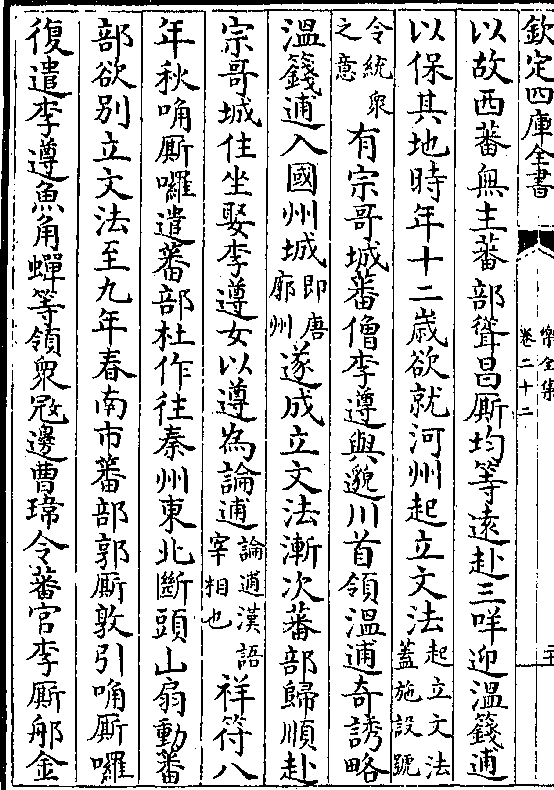 欽定四庫全書
樂全集
卷二十二
以故西蕃無主蕃部聳昌厮均等遠赴三咩迎溫籛逋
以保其地時年十二歲欲就河州起立文法起立文法蓋施設號
令統衆之意有宗哥城蕃僧李遵與邈川首領溫逋奇誘略
溫籛逋入國州城即唐廓州遂成立文法漸次蕃部歸順赴
宗哥城住坐娶李遵女以遵為論逋論逋漢語宰相也祥符八
年秋唃厮囉遣蕃部杜作往秦州東北斷頭山扇動蕃
部欲别立文法至九年春南市蕃部郭厮敦引唃厮囉
復遣李遵魚角蟬等領衆宼邊曹瑋令蕃官李厮郍金